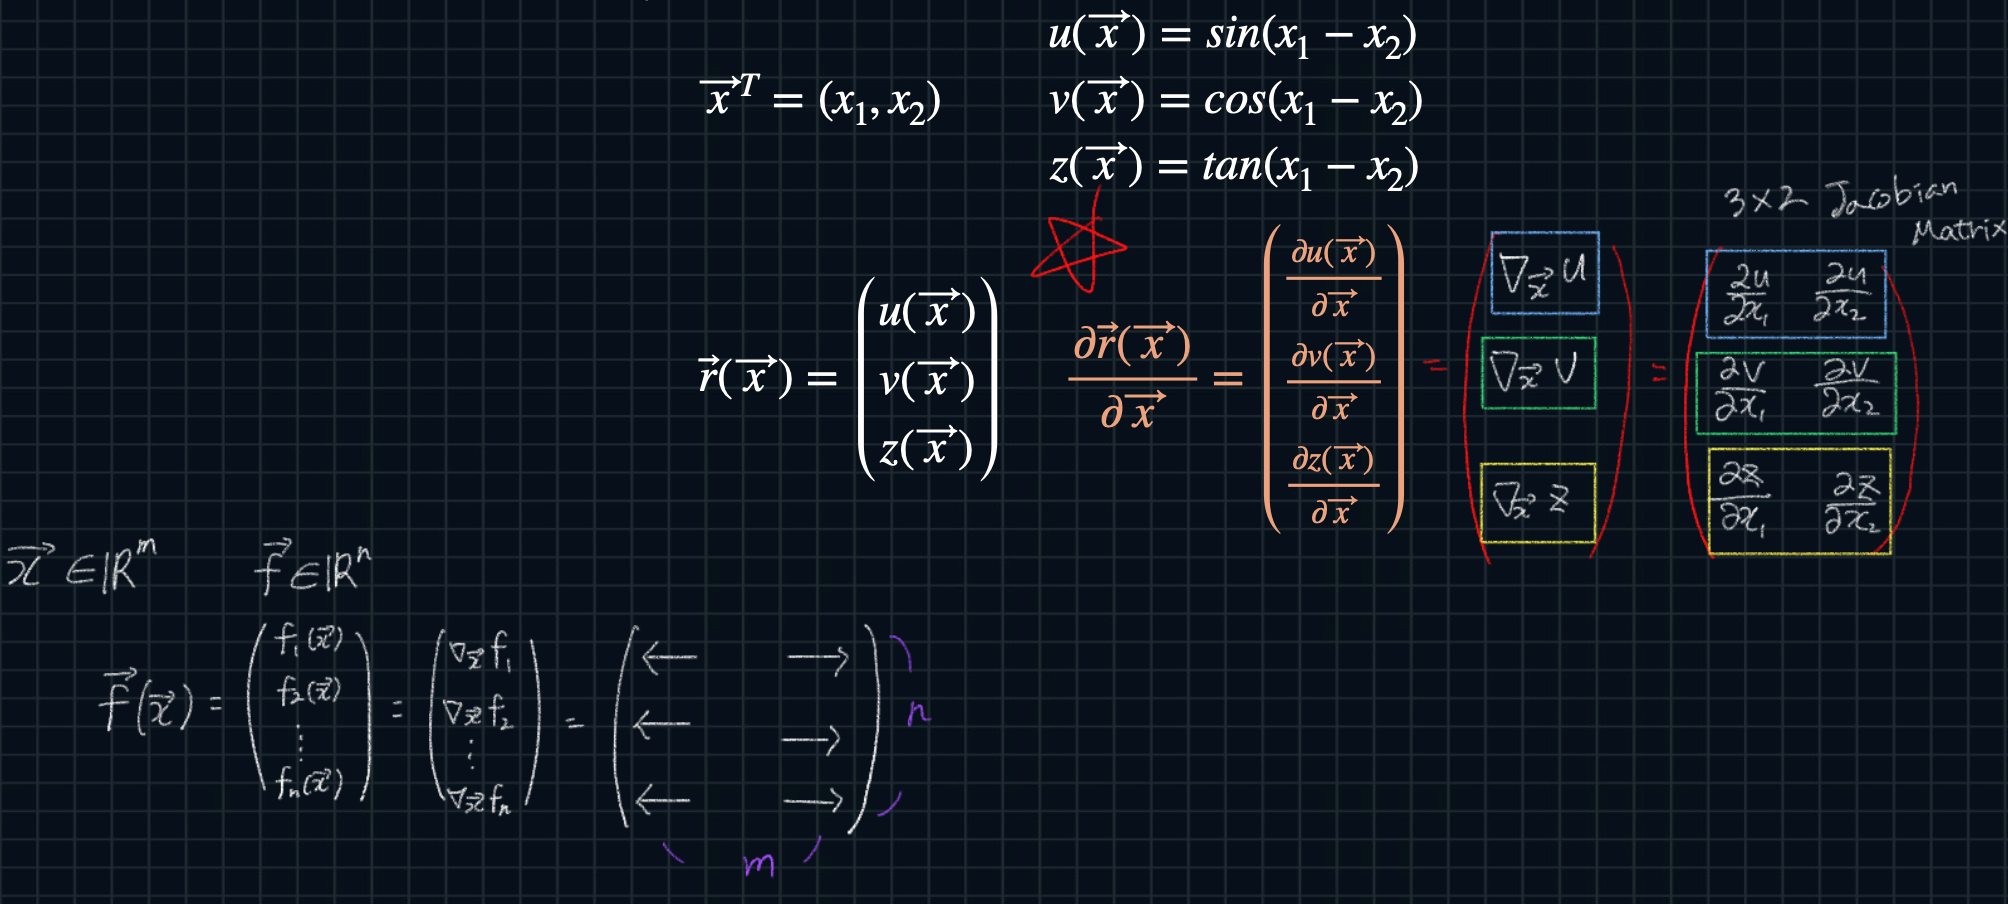 u(x⃗) = sin(x₁ − x₂)
x⃗ᵀ = (x₁, x₂)
v(x⃗) = cos(x₁ − x₂)
z(x⃗) = tan(x₁ − x₂)
3×2 Jacobian
Matrix
r⃗(x⃗) = ( u(x⃗) v(x⃗) z(x⃗) )
∂r⃗(x⃗)/∂x⃗ = ( ∂u(x⃗)/∂x⃗ ∂v(x⃗)/∂x⃗ ∂z(x⃗)/∂x⃗ ) = ( ∇x⃗ u ∇x⃗ v ∇x⃗ z ) = ( ∂u/∂x₁ ∂u/∂x₂ ∂v/∂x₁ ∂v/∂x₂ ∂z/∂x₁ ∂z/∂x₂ )
x⃗ ∈ ℝᵐ f⃗ ∈ ℝⁿ
f⃗(x⃗) = ( f₁(x⃗) f₂(x⃗) ⋮ fₙ(x⃗) ) = ( ∇x⃗ f₁ ∇x⃗ f₂ ⋮ ∇x⃗ fₙ ) = ( ← → ← → ← → ) n
m